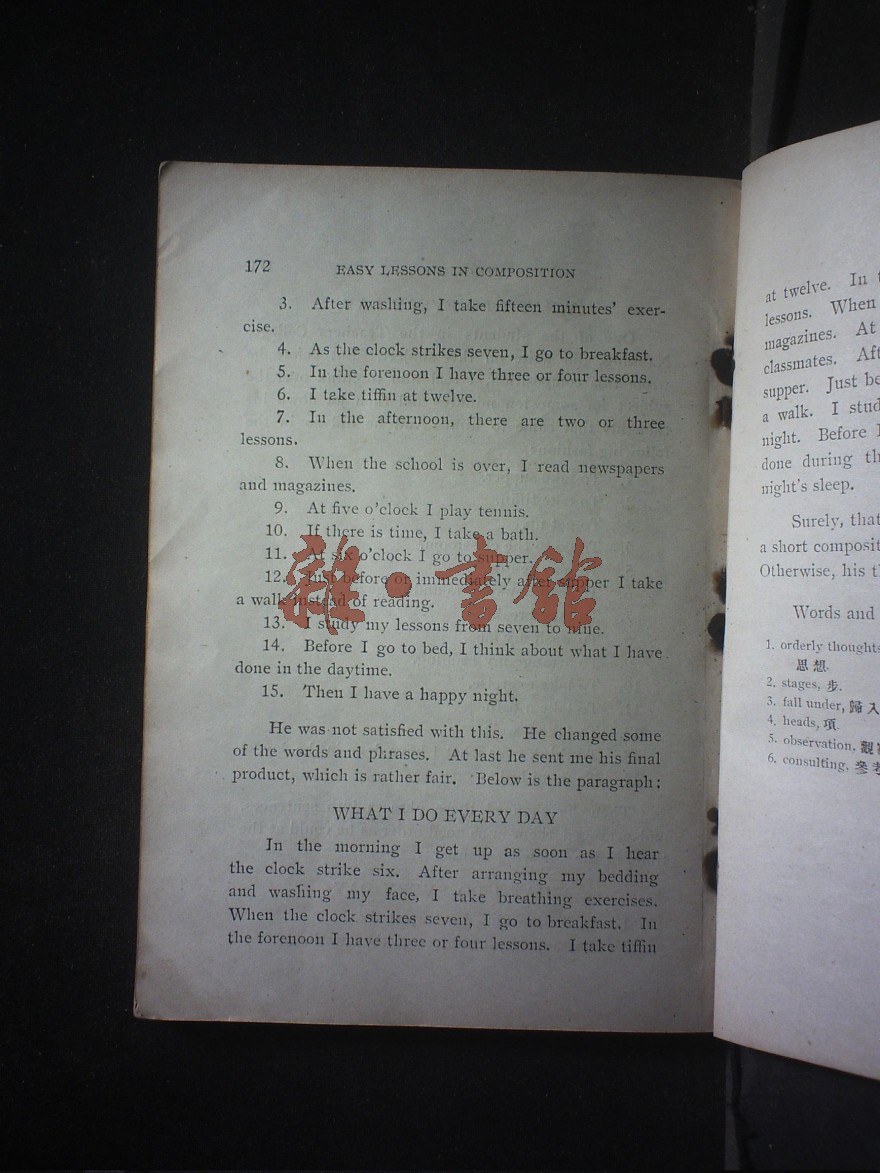 172 EASY LESSONS IN COMPOSITION
3. After washing, I take fifteen minutes' exer-
cise.
4. As the clock strikes seven, I go to breakfast.
5. In the forenoon I have three or four lessons.
6. I take tiffin at twelve.
7. In the afternoon, there are two or three
lessons.
8. When the school is over, I read newspapers
and magazines.
9. At five o'clock I play tennis.
10. If there is time, I take a bath.
11. At six o'clock I go to supper.
12. Just before or immediately after supper I take
a walk instead of reading.
13. I study my lessons from seven to nine.
14. Before I go to bed, I think about what I have
done in the daytime.
15. Then I have a happy night.
He was not satisfied with this. He changed some
of the words and phrases. At last he sent me his final
product, which is rather fair. Below is the paragraph:
WHAT I DO EVERY DAY
In the morning I get up as soon as I hear
the clock strike six. After arranging my bedding
and washing my face, I take breathing exercises.
When the clock strikes seven, I go to breakfast. In
the forenoon I have three or four lessons. I take tiffin
雜·書館
at twelve. In
lessons. When
magazines. At
classmates.
supper. Just
a walk. I
night. Before
done during
night's sleep.
Surely, that
a short
Otherwise, his
Words and
1. orderly
思想.
2. stages, 步.
3. fall under, 歸入
4. heads, 項.
5. observation, 觀
6. consulting, 參考